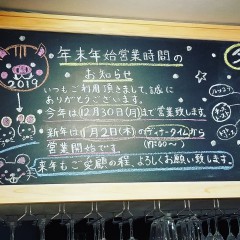 年末年始営業時間の
お知らせ
2019
いつもご利用頂きまして、誠に
ありがとうございます。
今年は12月30日(月)まで営業致します。
新年は1月2日(木)のディナータイムから
(17:00〜)
営業開始です。
来年もご愛顧の程、よろしくお願い致します。